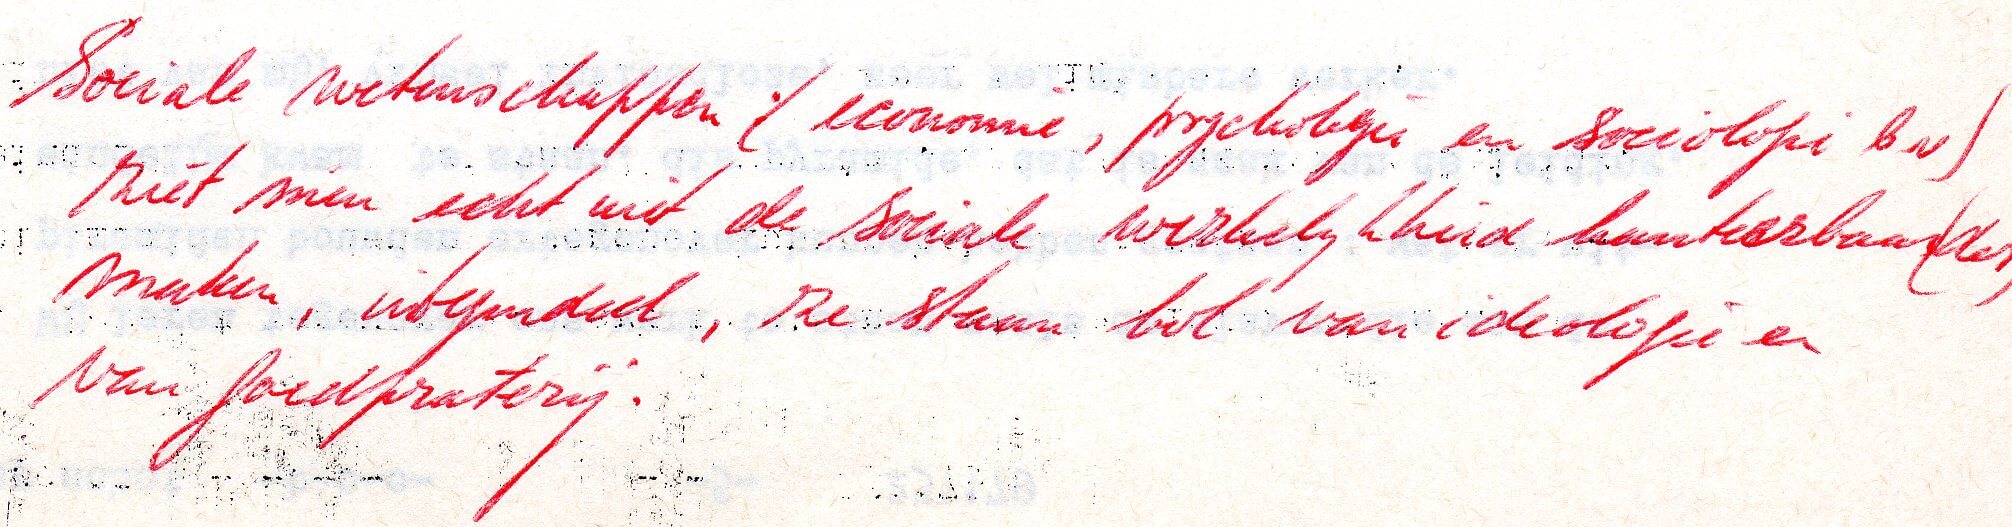 Sociale wetenschappen (economie, psychologie en sociologie bv)
ziet men echt uit de sociale werkelijkheid hanteerbaar(der)
maken, integendeel, ze staan bol van ideologie en
van goedpraterij.